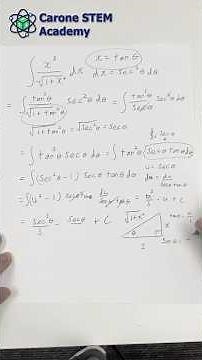 Carone STEM
Academy
∫ x³/√(1+x²) dx   x = tanθ   dx = sec²θ dθ
= ∫ tan³θ/√(1+tan²θ) sec²θ dθ = ∫ tan³θ/secθ sec²θ dθ
√(1+tan²θ) = √sec²θ = secθ
= ∫ tan³θ secθ dθ = ∫ tan²θ secθ tanθ dθ
u = secθ
= ∫ (sec²θ - 1) secθ tanθ dθ   dθ = du/secθ tanθ
= ∫ (u² - 1) secθ tanθ du/secθ tanθ = u³/3 - u + C
= sec³θ/3 - secθ + C   √(1+x²)   x
θ
1